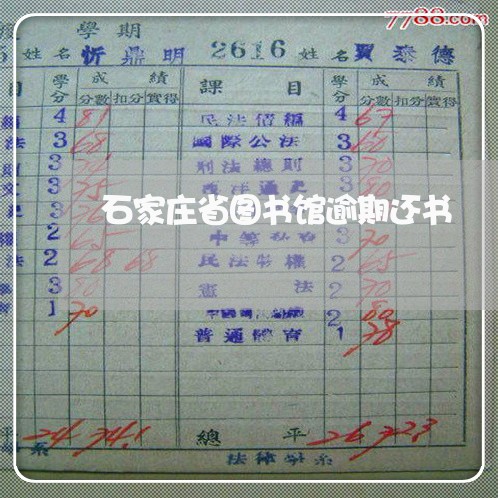 7788.com
學期
姓名 忻鼎明 2616 姓名 賈泰德
目 學分 成績 課目 學分 成績
分數 扣分 實得 分數 扣分 實得
4 81 民法債編 4 67
法 3 68 國際公法 3 60
3 刑法總則 3 70
3 75 3 80
石家庄省图书馆逾期还书
2 65 3 70
法 2 68 68 民法物權 2 65
3 80 憲法 2 70
1 70 2 80
普通體育 1 78
平 24 74.1 總平 26 72.3
系 法律學系